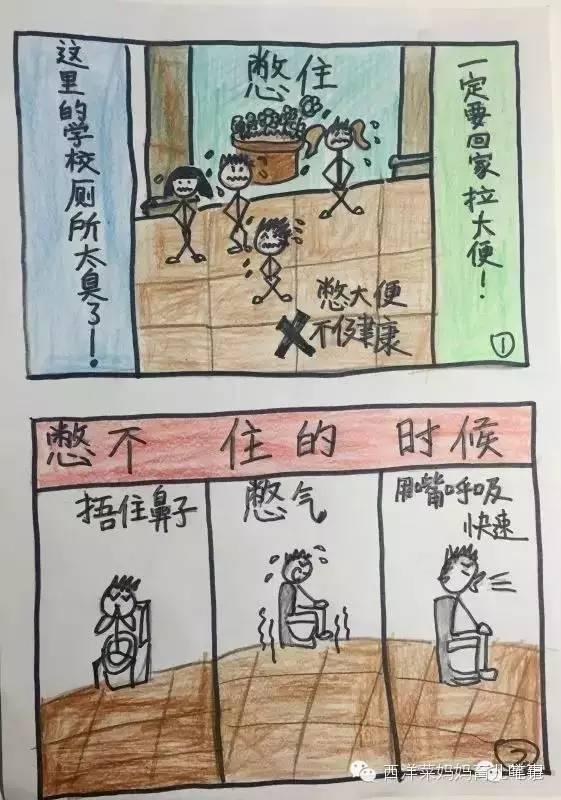 这里的学校厕所太臭了！
憋住
一定要回家拉大便！
憋大便
不健康
1
憋不住的时候
捂住鼻子
憋气
用嘴呼吸
快速
2
西洋菜妈妈育儿